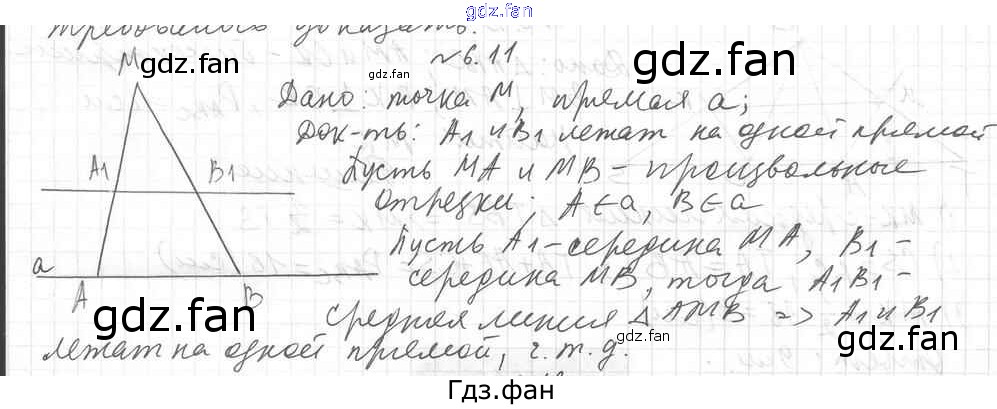 gdz.fan
требовалось доказать.
№6.11
gdz.fan
M
Дано: точка M, прямая a;
Док-ть: A1 и B1 лежат на одной прямой
A1 B1
Пусть MA и MB – произвольные
отрезки; A∈a, B∈a
Пусть A1 – середина MA, B1 –
a
середина MB, тогда A1B1 –
A B
gdz.fan
gdz.fan
средняя линия △AMB => A1 и B1
лежат на одной прямой, ч.т.д.
gdz.fan
gdz.fan
Гдз.фан